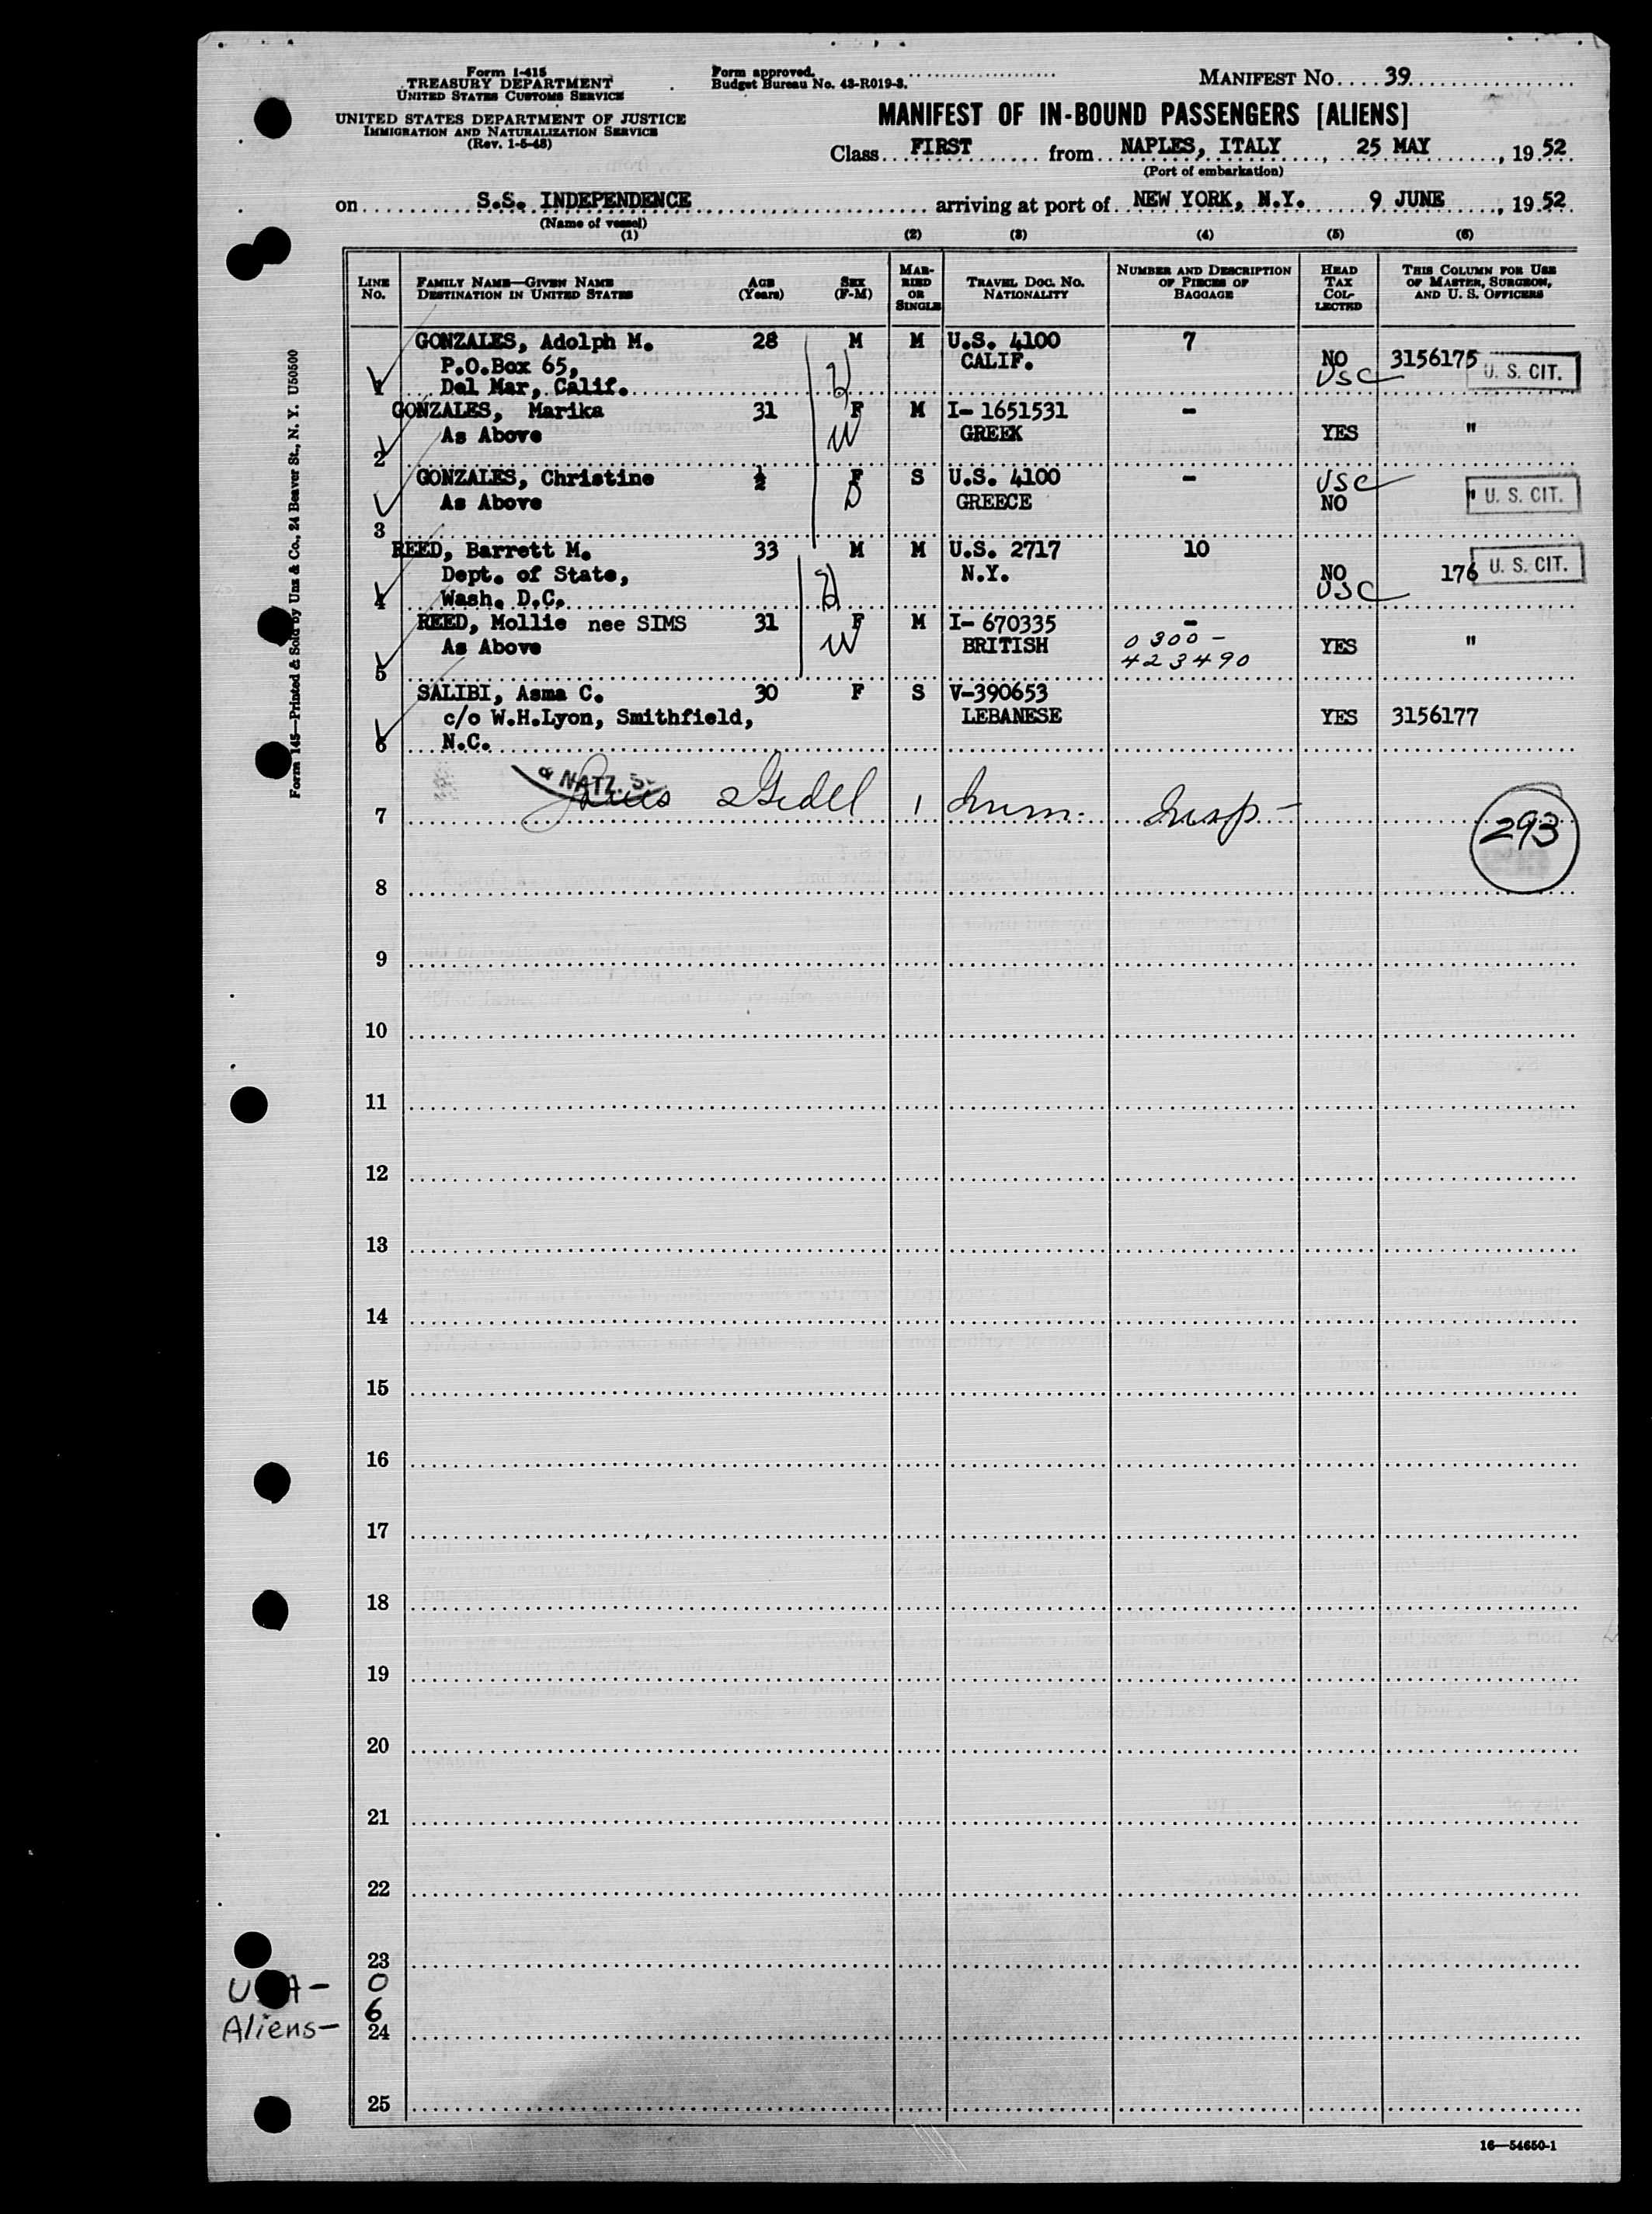 Form I-415
TREASURY DEPARTMENT
UNITED STATES CUSTOMS SERVICE
UNITED STATES DEPARTMENT OF JUSTICE
IMMIGRATION AND NATURALIZATION SERVICE
(Rev. 1-5-48)
Form approved.
Budget Bureau No. 43-R019-3.
MANIFEST NO. 39
MANIFEST OF IN-BOUND PASSENGERS [ALIENS]
Class FIRST from NAPLES, ITALY, 25 MAY, 19 52
(Port of embarkation)
on S.S. INDEPENDENCE arriving at port of NEW YORK, N.Y. 9 JUNE, 19 52
(Name of vessel)
(1) (2) (3) (4) (5) (6)
LINE NO. FAMILY NAME—GIVEN NAME DESTINATION IN UNITED STATES AGE (Years) SEX (F-M) MARRIED OR SINGLE TRAVEL DOC. NO. NATIONALITY NUMBER AND DESCRIPTION OF PIECES OF BAGGAGE HEAD TAX COLLECTED THIS COLUMN FOR USE OF MASTER, SURGEON, AND U. S. OFFICERS
GONZALES, Adolph M. 28 M M U.S. 4100 7
P.O.Box 65, CALIF. NO 3156175 U. S. CIT.
1 Del Mar, Calif. H USC
GONZALES, Marika 31 F M I- 1651531 -
As Above W GREEK YES "
2
GONZALES, Christine ½ F S U.S. 4100 - USC
As Above D GREECE NO " U. S. CIT.
3
REED, Barrett M. 33 M M U.S. 2717 10
Dept. of State, N.Y. NO 176 U. S. CIT.
4 Wash. D.C. H USC
REED, Mollie nee SIMS 31 F M I- 670335 -
As Above W BRITISH 0300- YES "
5 423490
SALIBI, Asma C. 30 F S V-390653
c/o W.H.Lyon, Smithfield, LEBANESE YES 3156177
6 N.C.
& NATZ. S
7 Imm. Insp-
293
8
9
10
11
12
13
14
15
16
17
18
19
20
21
22
23
U A - 0
Aliens- 6
24
25
16—54650-1
Form 145—Printed & Sold by Unz & Co., 24 Beaver St., N. Y. U50500